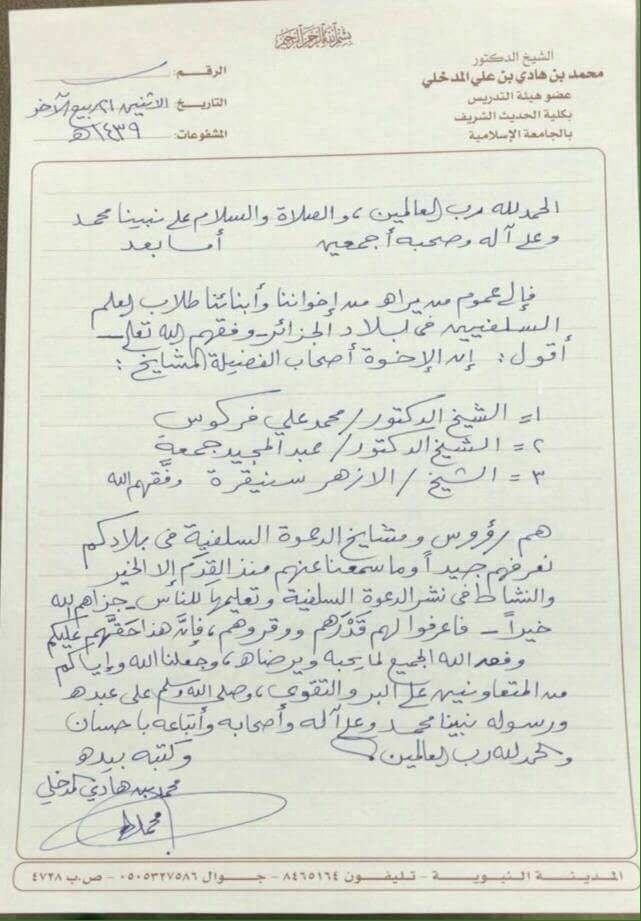 بسم الله الرحمن الرحيم
الشيخ الدكتور
محمد بن هادي بن علي المدخلي
عضو هيئة التدريس
بكلية الحديث الشريف
بالجامعة الإسلامية
الرقم:
التاريخ: الاثنين ٢١ ربيع الآخر
المشفوعات: ١٤٣٩هـ
الحمد لله رب العالمين، والصلاة والسلام على نبينا محمد
وعلى آله وصحبه أجمعين أما بعد
فإلى عموم من يراه من إخواننا وأبنائنا طلاب العلم
السلفيين في بلاد الجزائر - وفقهم الله تعالى -
أقول: إن الإخوة أصحاب الفضيلة المشايخ:
١= الشيخ الدكتور/ محمد علي فركوس
٢= الشيخ الدكتور/ عبد المجيد جمعة
٣= الشيخ/ الازهر سنيقرة وفقهم الله
هم رؤوس ومشايخ الدعوة السلفية في بلادكم
نعرفهم جيداً وما سمعنا عنهم منذ القِدَم إلا الخير
والنشاط في نشر الدعوة السلفية وتعليمها للناس - جزاهم الله
خيراً - فاعرفوا لهم قَدْرَهم ووقروهم، فإنَّ هذا حَقَّهم عليكم
وفق الله الجميع لما يحبه ويرضاه، وجعلنا الله وإياكم
من المتعاونين على البر والتقوى، وصلى الله وسلم على عبده
ورسوله نبينا محمد وعلى آله وأصحابه وأتباعه بإحسان
والحمد لله رب العالمين وكتبه بيده
محمد بن هادي المدخلي
المدينة النبوية - تليفون ٨٤٦٥١٦٤ - جوال ٠٥٠٥٣٢٧٥٨٦ - ص.ب ٤٧٢٨